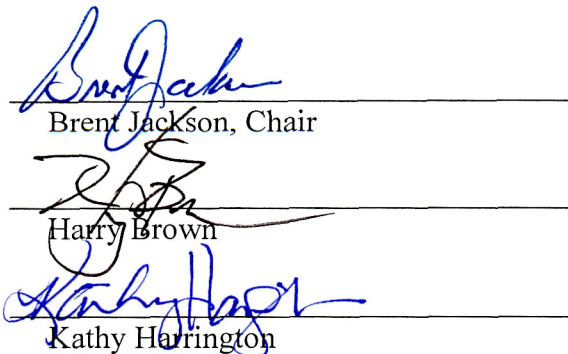 Brent Jackson
Brent Jackson, Chair
Harry Brown
Kathy Harrington